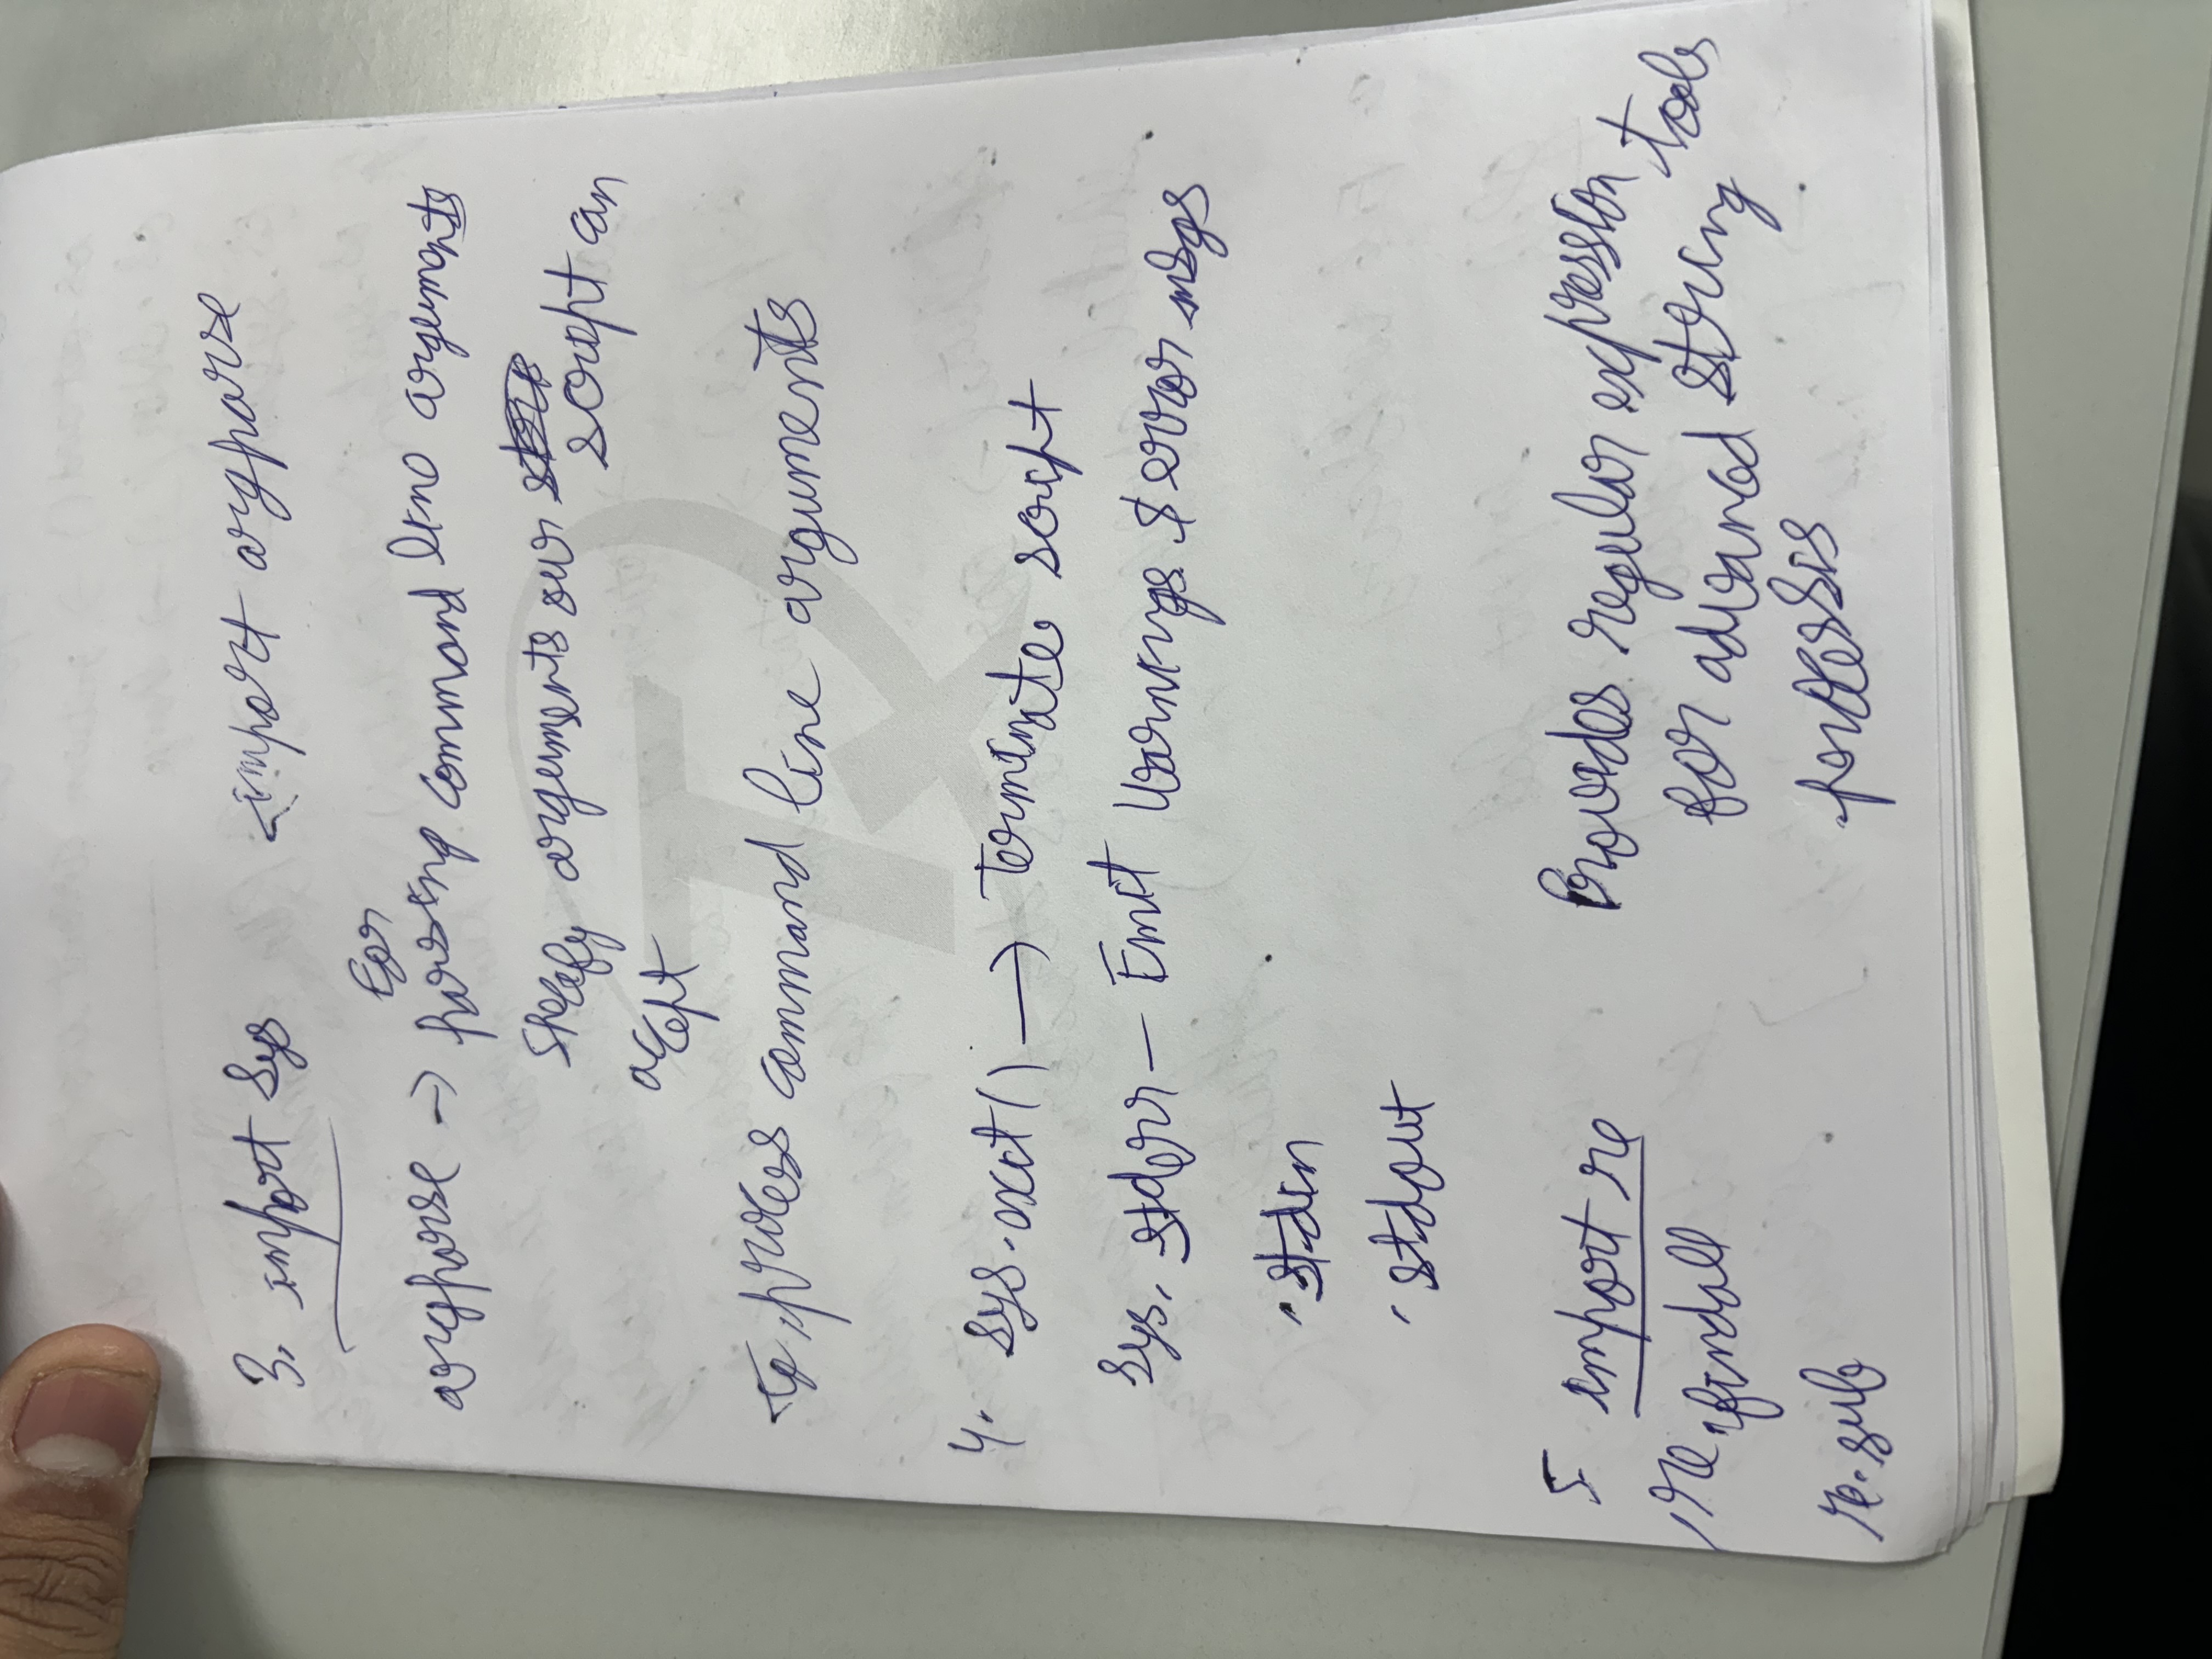 3. import sys import argparse
For
argparse → parsing command line arguments
specify arguments our
script can
accept
To process command line arguments
4. sys.exit() → Terminate script
sys. stderr — Emit Warnings & error msgs
. stdin
. stdout
5. import re Provides regular expression tools
re.findall for advanced string
re.sub processis